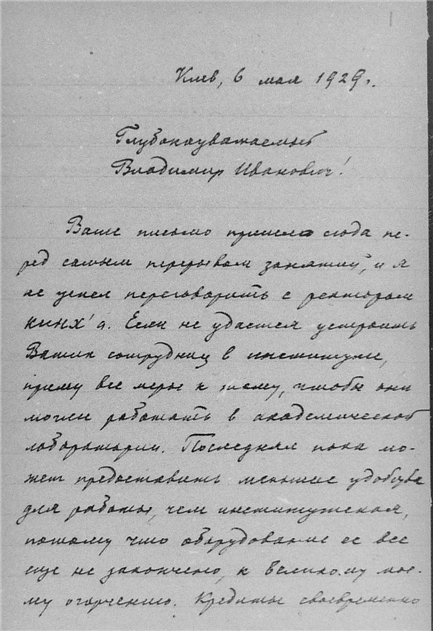 Киев, 6 мая 1929 г.
Глубокоуважаемый
Владимир Иванович!
Ваше письмо пришло сюда пе-
ред самым перерывом занятий, и я
не успел переговорить с ректором
КИНХ'а. Если не удастся устроить
Ваших сотрудниц в институте,
приму все меры к тому, чтобы они
могли работать в академической
лаборатории. Последняя пока мо-
жет предоставить меньшие удобства
для работы, чем институтская,
потому что оборудование ее все
еще не закончено, к великому мое-
му огорчению. Кредиты своевременно